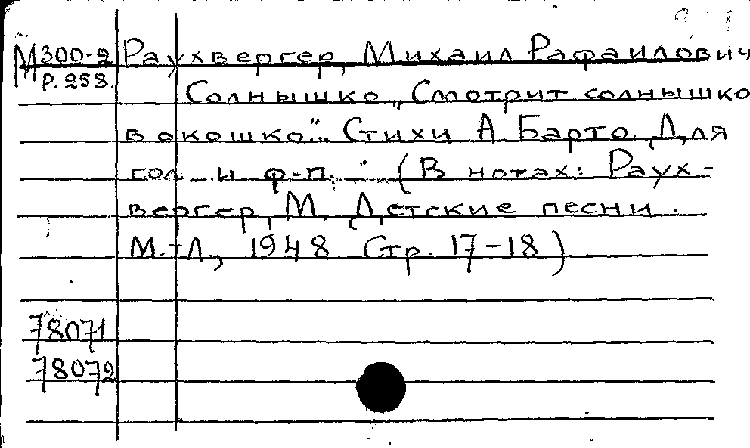 М300-2 Раухвергер, Михаил Рафаилович
Р.258. Солнышко „Смотрит солнышко
в окошко". Стихи А. Барто. Для
гол. и ф-п. (В нотах: Раух-
вергер, М. Детские песни.
М.-Л., 1948 Стр. 17-18)
78071
78072